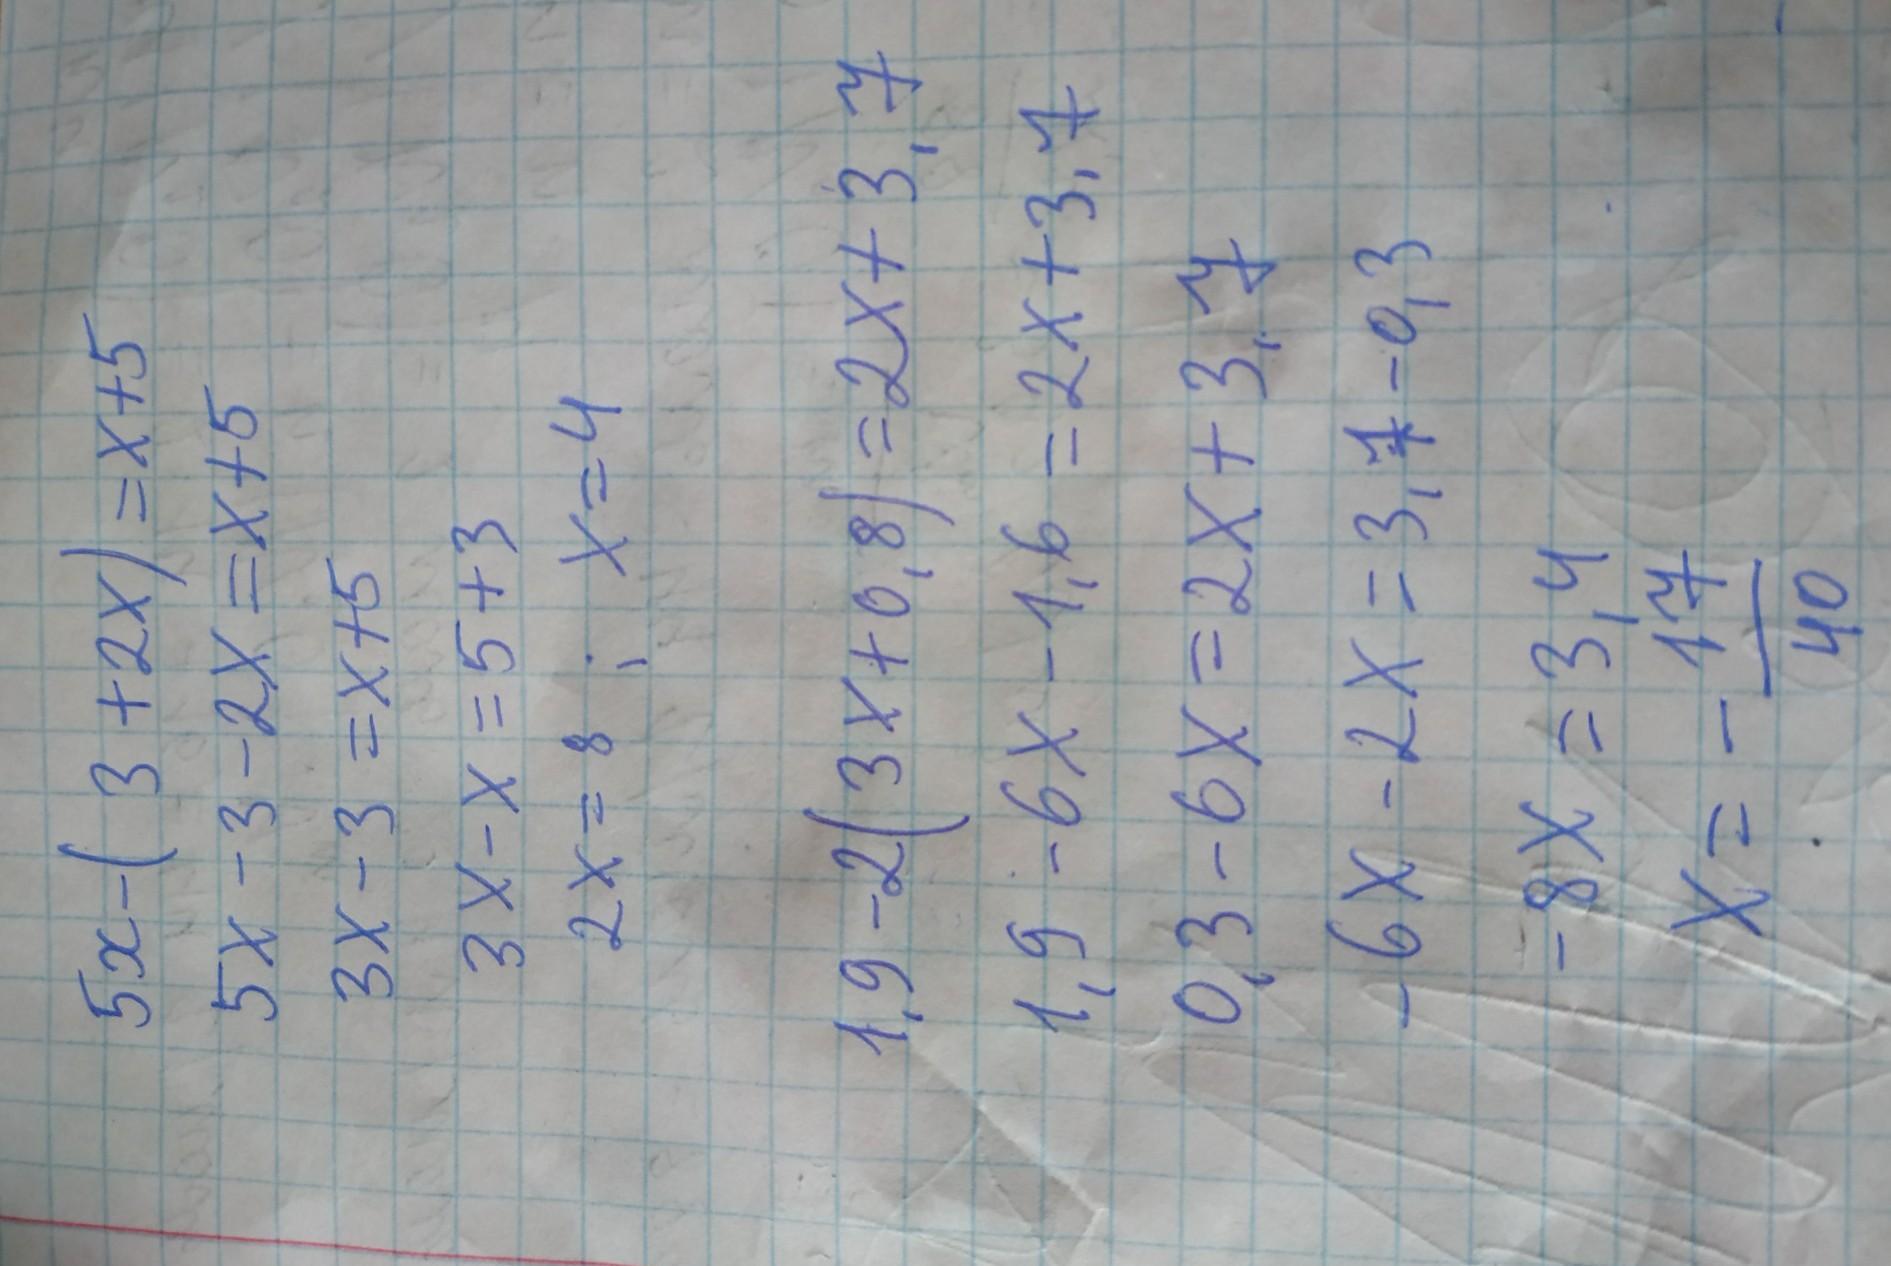 5x-(3+2x)=x+5
5x-3-2x=x+5
3x-3=x+5
3x-x=5+3
2x=8; x=4
1,9-2(3x+0,8)=2x+3,7
1,9-6x-1,6=2x+3,7
0,3-6x=2x+3,7
-6x-2x=3,7-0,3
-8x=3,4
x=-17/40